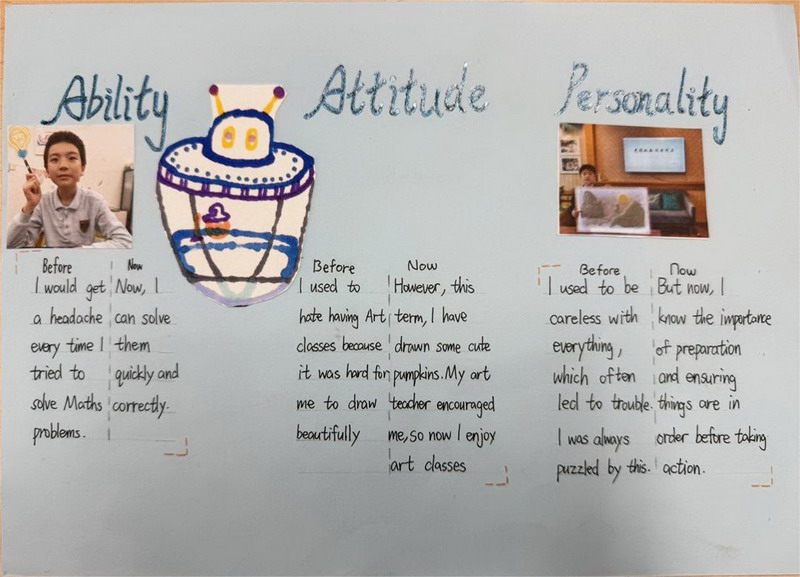 Ability
Attitude
Personality
Before
I would get
a headache
every time I
tried to
solve Maths
problems.
Now
Now, I
can solve
them
quickly and
correctly.
Before
I used to
hate having Art
classes because
it was hard for
me to draw
beautifully
Now
However, this
term, I have
drawn some cute
pumpkins. My art
teacher encouraged
me, so now I enjoy
art classes
Before
I used to be
careless with
everything,
which often
led to trouble.
I was always
puzzled by this.
Now
But now, I
know the importance
of preparation
and ensuring
things are in
order before taking
action.